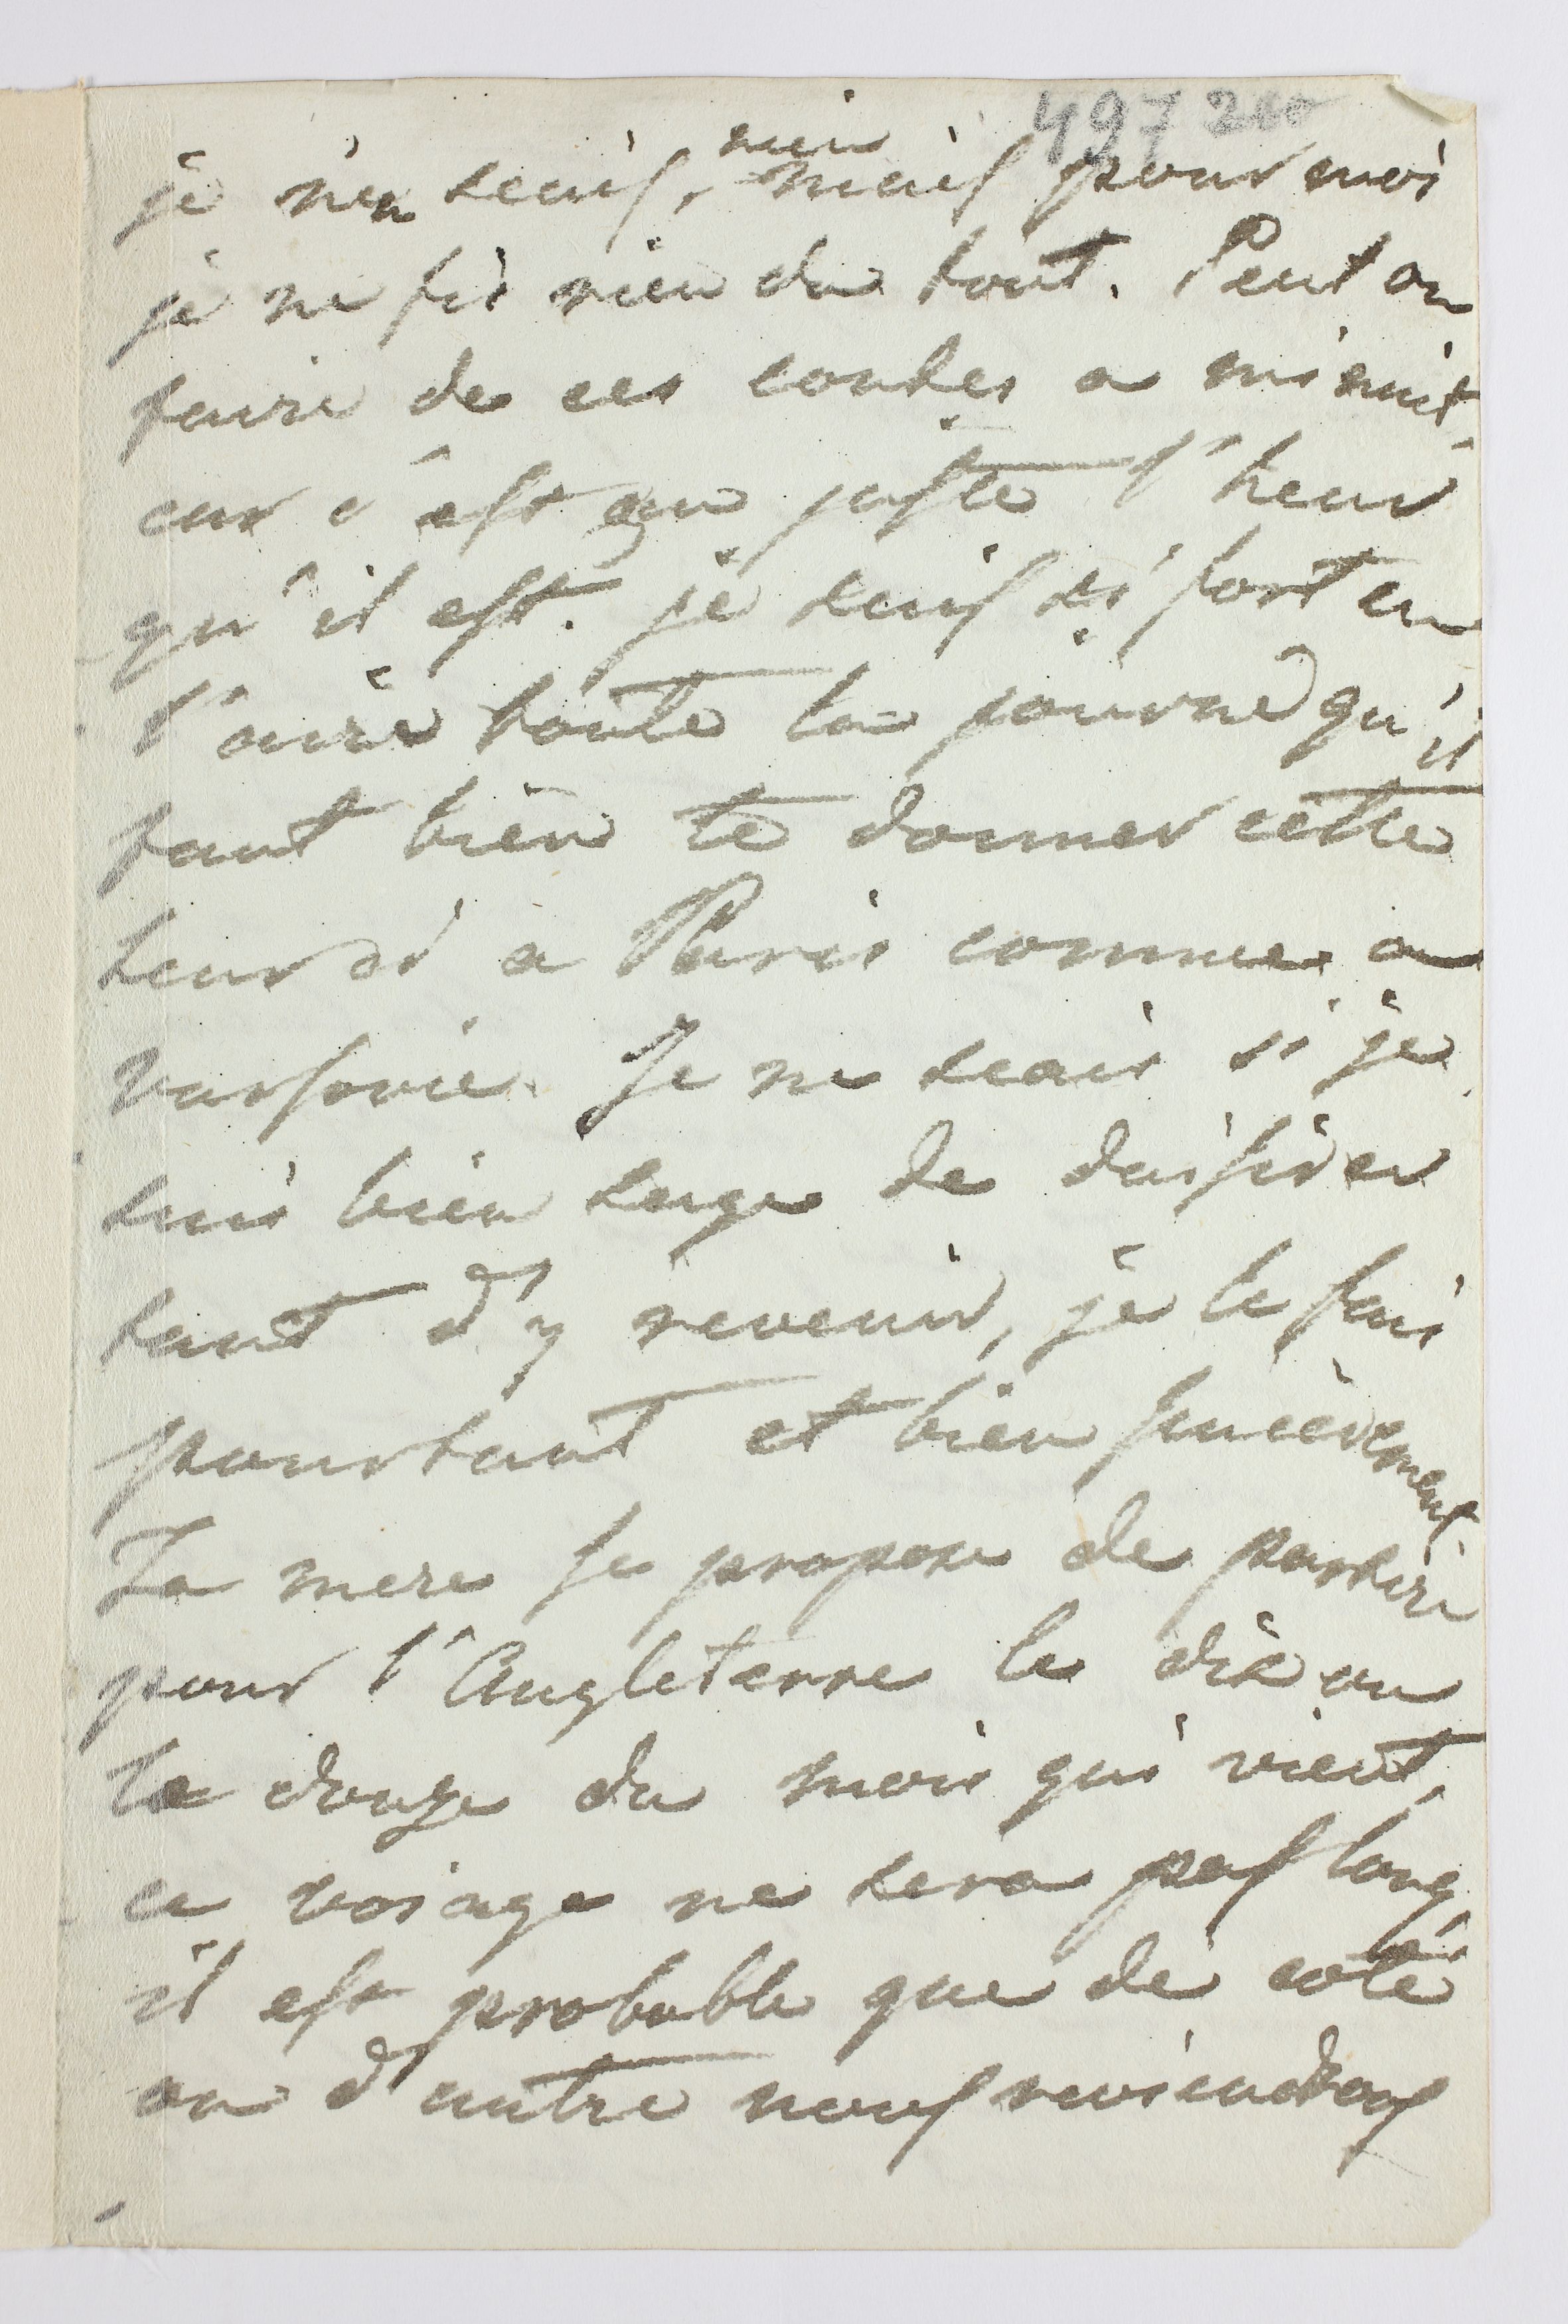 497 210
je n'en suis, mais pour moi
je ne fis rien du tout. Peut on
faire de ces contes a minuit,
car c'est au juste l'heur
qu'il est. je suis si fort en
l'aire toute la journé qu'il
faut bien te donner cette
heur ci a Paris comme a
Varsovie. Je ne scais si je
suis bien sage de desirer
tant d'y revenir, je le fais
pourtant et bien sincèrement.
Ta mere se propose de partire
pour l'Angleterre le dix ou
le douze du mois qui vient,
ce voiage ne sera pas long,
il est probable que de coté
ou d'autre nous reviendrons